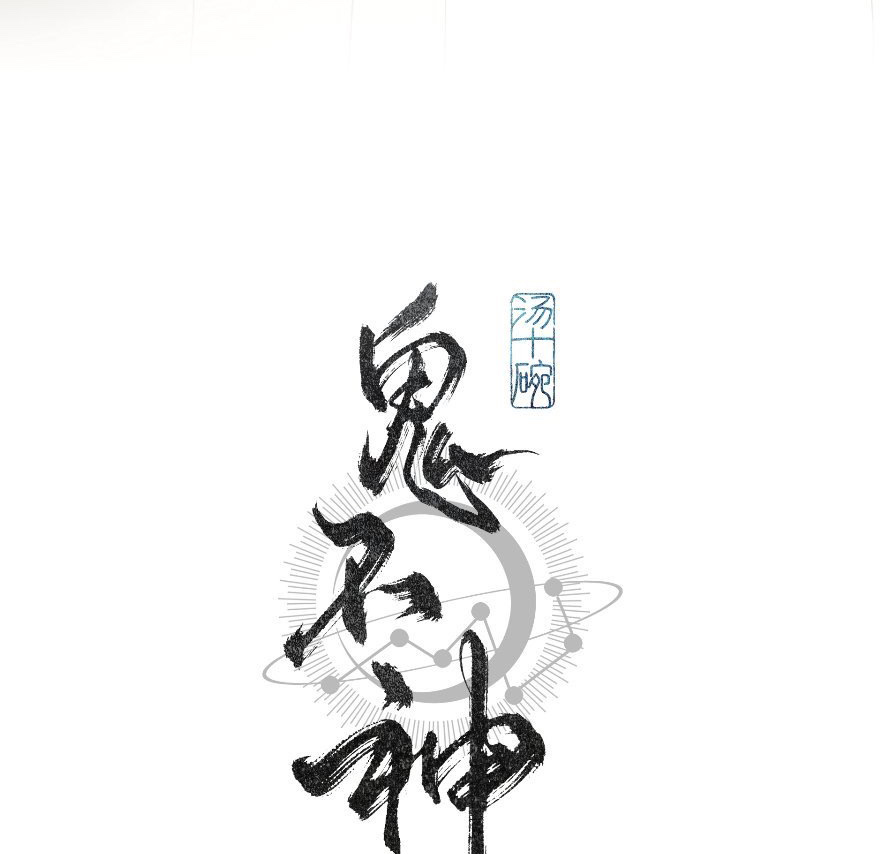 鬼不神
汤十碗